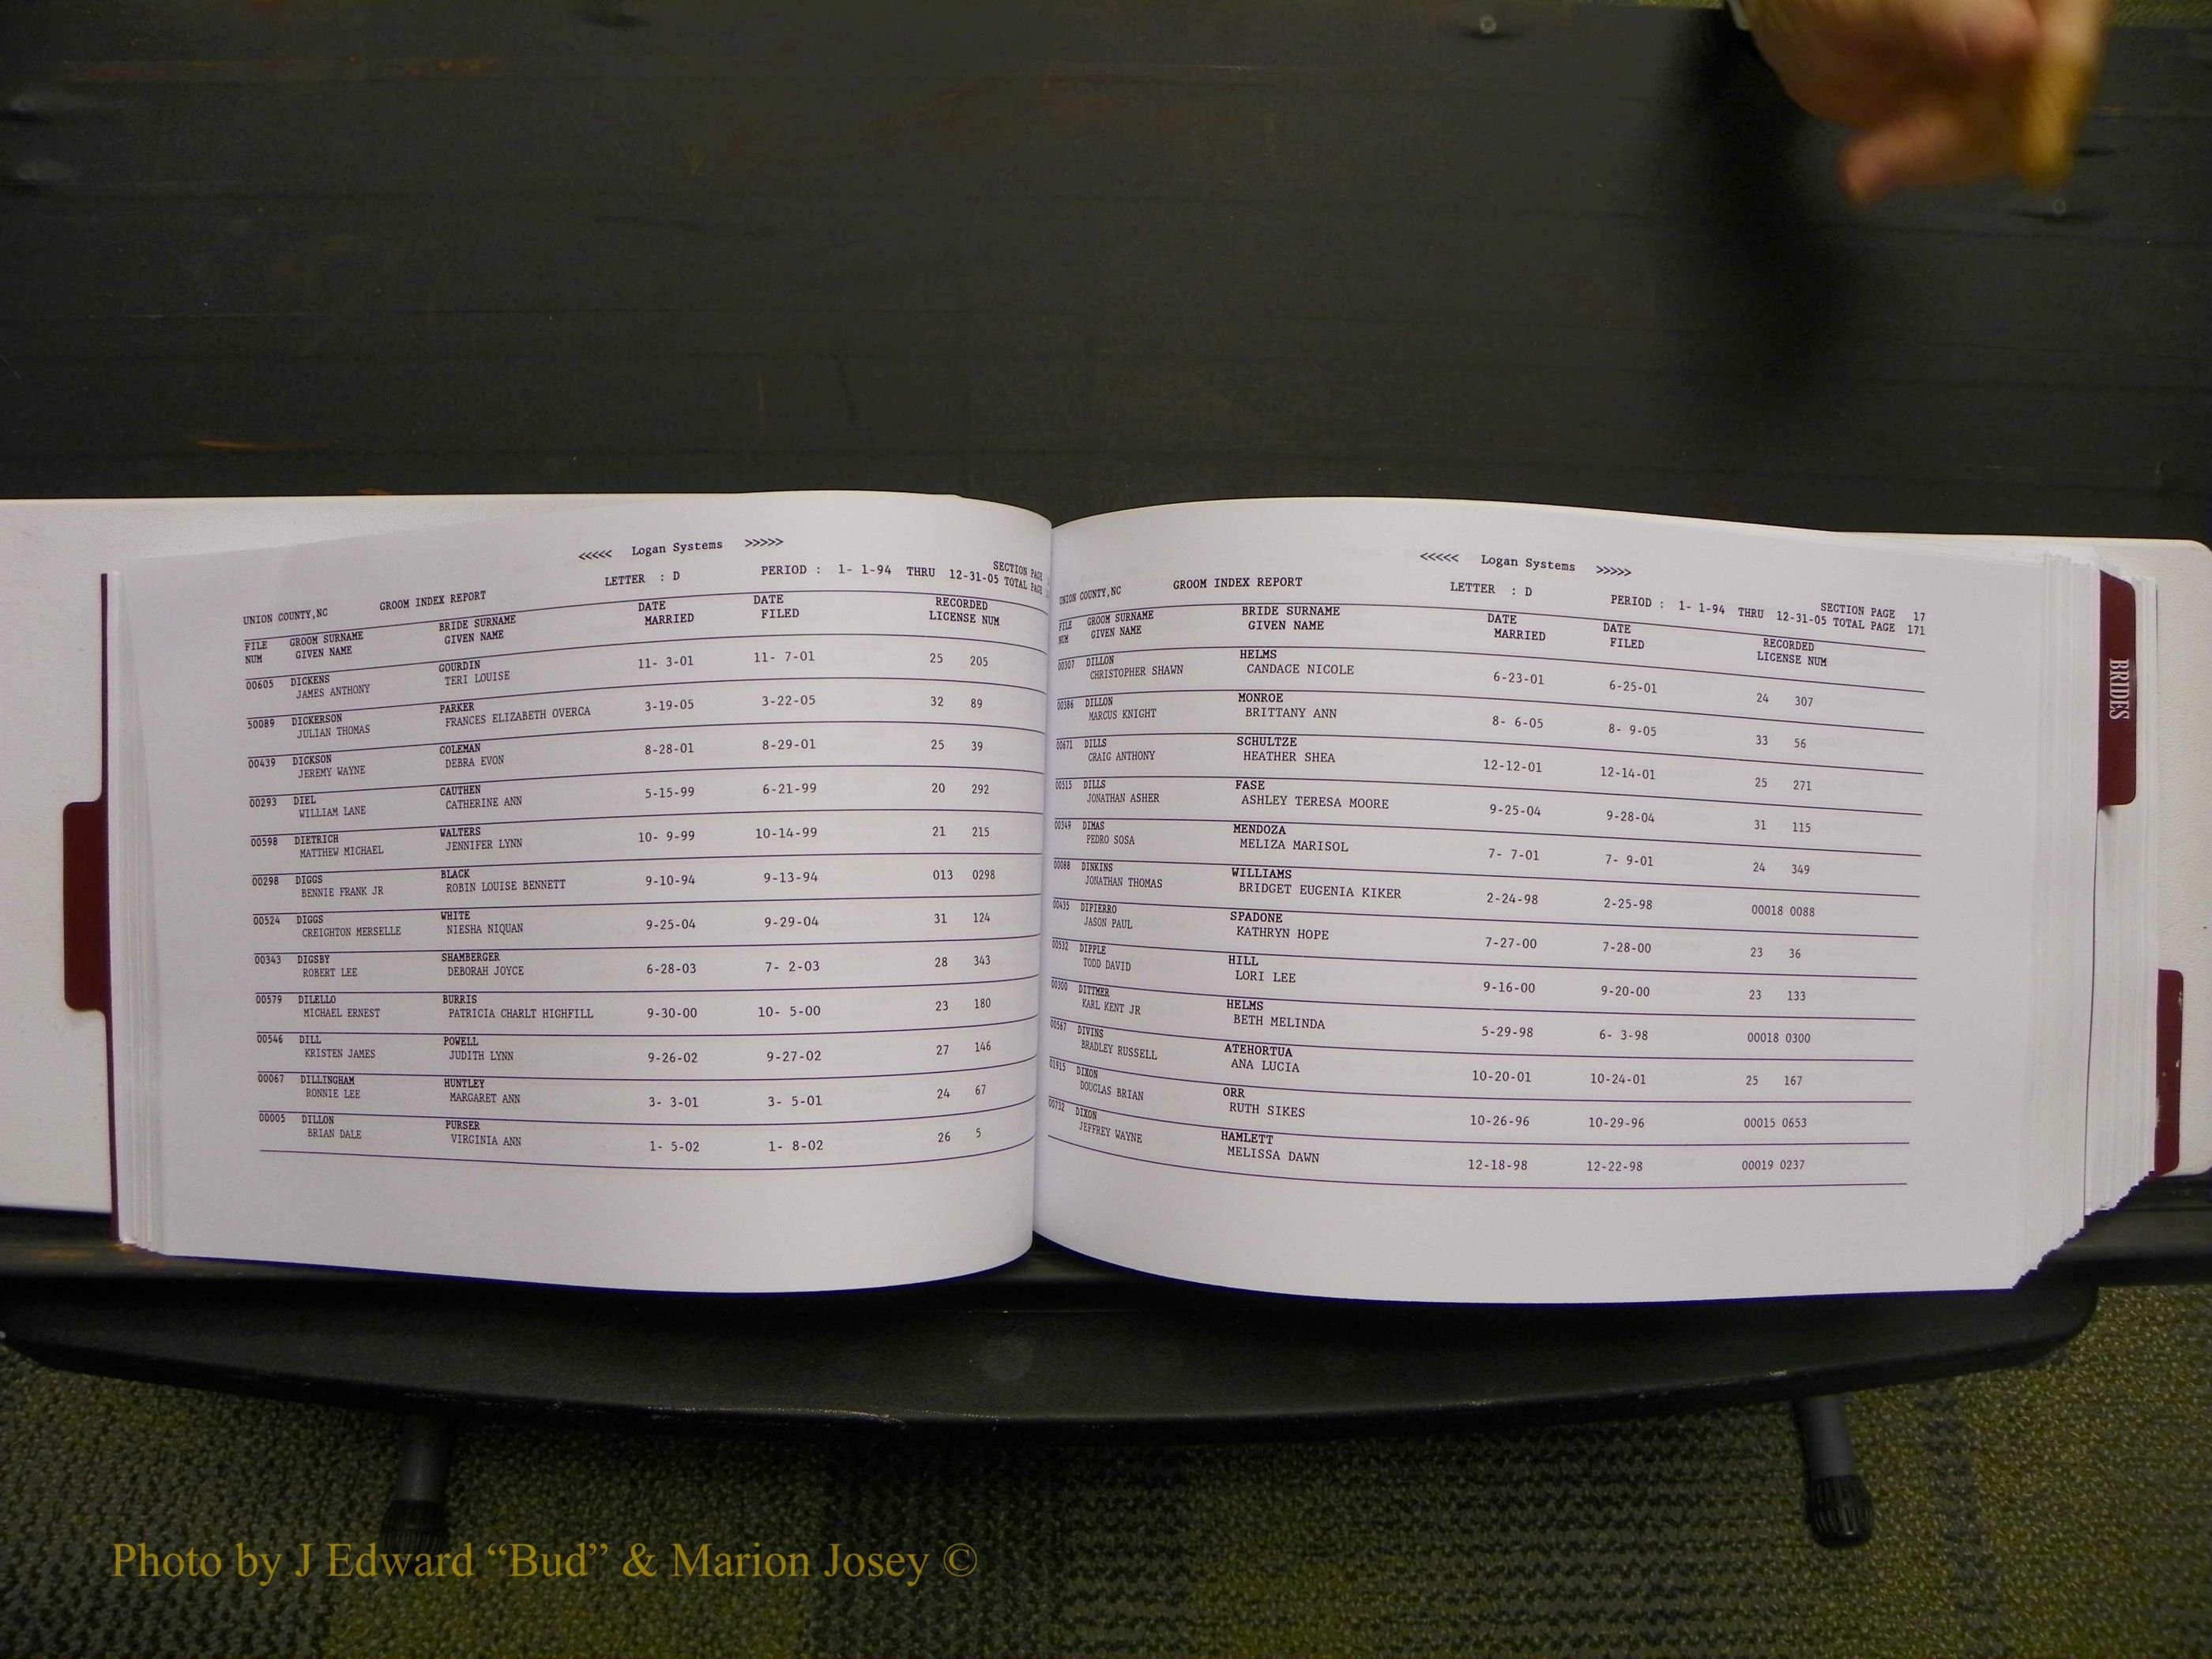 <<<<< Logan Systems >>>>>
UNION COUNTY,NC GROOM INDEX REPORT LETTER : D PERIOD : 1- 1-94 THRU 12-31-05 SECTION PAGE
TOTAL PAGE
FILE GROOM SURNAME BRIDE SURNAME DATE DATE RECORDED
NUM GIVEN NAME GIVEN NAME MARRIED FILED LICENSE NUM
00605 DICKENS GOURDIN 11- 3-01 11- 7-01 25 205
JAMES ANTHONY TERI LOUISE
50089 DICKERSON PARKER 3-19-05 3-22-05 32 89
JULIAN THOMAS FRANCES ELIZABETH OVERCA
00439 DICKSON COLEMAN 8-28-01 8-29-01 25 39
JEREMY WAYNE DEBRA EVON
00293 DIEL CAUTHEN 5-15-99 6-21-99 20 292
WILLIAM LANE CATHERINE ANN
00598 DIETRICH WALTERS 10- 9-99 10-14-99 21 215
MATTHEW MICHAEL JENNIFER LYNN
00298 DIGGS BLACK 9-10-94 9-13-94 013 0298
BENNIE FRANK JR ROBIN LOUISE BENNETT
00524 DIGGS WHITE 9-25-04 9-29-04 31 124
CREIGHTON MERSELLE NIESHA NIQUAN
00343 DIGSBY SHAMBERGER 6-28-03 7- 2-03 28 343
ROBERT LEE DEBORAH JOYCE
00579 DILELLO BURRIS 9-30-00 10- 5-00 23 180
MICHAEL ERNEST PATRICIA CHARLT HIGHFILL
00546 DILL POWELL 9-26-02 9-27-02 27 146
KRISTEN JAMES JUDITH LYNN
00067 DILLINGHAM HUNTLEY 3- 3-01 3- 5-01 24 67
RONNIE LEE MARGARET ANN
00005 DILLON PURSER 1- 5-02 1- 8-02 26 5
BRIAN DALE VIRGINIA ANN
<<<<< Logan Systems >>>>>
UNION COUNTY,NC GROOM INDEX REPORT LETTER : D PERIOD : 1- 1-94 THRU 12-31-05 SECTION PAGE 17
TOTAL PAGE 171
FILE GROOM SURNAME BRIDE SURNAME DATE DATE RECORDED
NUM GIVEN NAME GIVEN NAME MARRIED FILED LICENSE NUM
00307 DILLON HELMS 6-23-01 6-25-01 24 307
CHRISTOPHER SHAWN CANDACE NICOLE
00386 DILLON MONROE 8- 6-05 8- 9-05 33 56
MARCUS KNIGHT BRITTANY ANN
00671 DILLS SCHULTZE 12-12-01 12-14-01 25 271
CRAIG ANTHONY HEATHER SHEA
00515 DILLS FASE 9-25-04 9-28-04 31 115
JONATHAN ASHER ASHLEY TERESA MOORE
00349 DIMAS MENDOZA 7- 7-01 7- 9-01 24 349
PEDRO SOSA MELIZA MARISOL
00088 DINKINS WILLIAMS 2-24-98 2-25-98 00018 0088
JONATHAN THOMAS BRIDGET EUGENIA KIKER
00435 DIPIERRO SPADONE 7-27-00 7-28-00 23 36
JASON PAUL KATHRYN HOPE
00532 DIPPLE HILL 9-16-00 9-20-00 23 133
TODD DAVID LORI LEE
00300 DITTMER HELMS 5-29-98 6- 3-98 00018 0300
KARL KENT JR BETH MELINDA
00567 DIVINS ATEHORTUA 10-20-01 10-24-01 25 167
BRADLEY RUSSELL ANA LUCIA
01915 DIXON ORR 10-26-96 10-29-96 00015 0653
DOUGLAS BRIAN RUTH SIKES
00732 DIXON HAMLETT 12-18-98 12-22-98 00019 0237
JEFFREY WAYNE MELISSA DAWN
BRIDES
Photo by J Edward “Bud” & Marion Josey ©